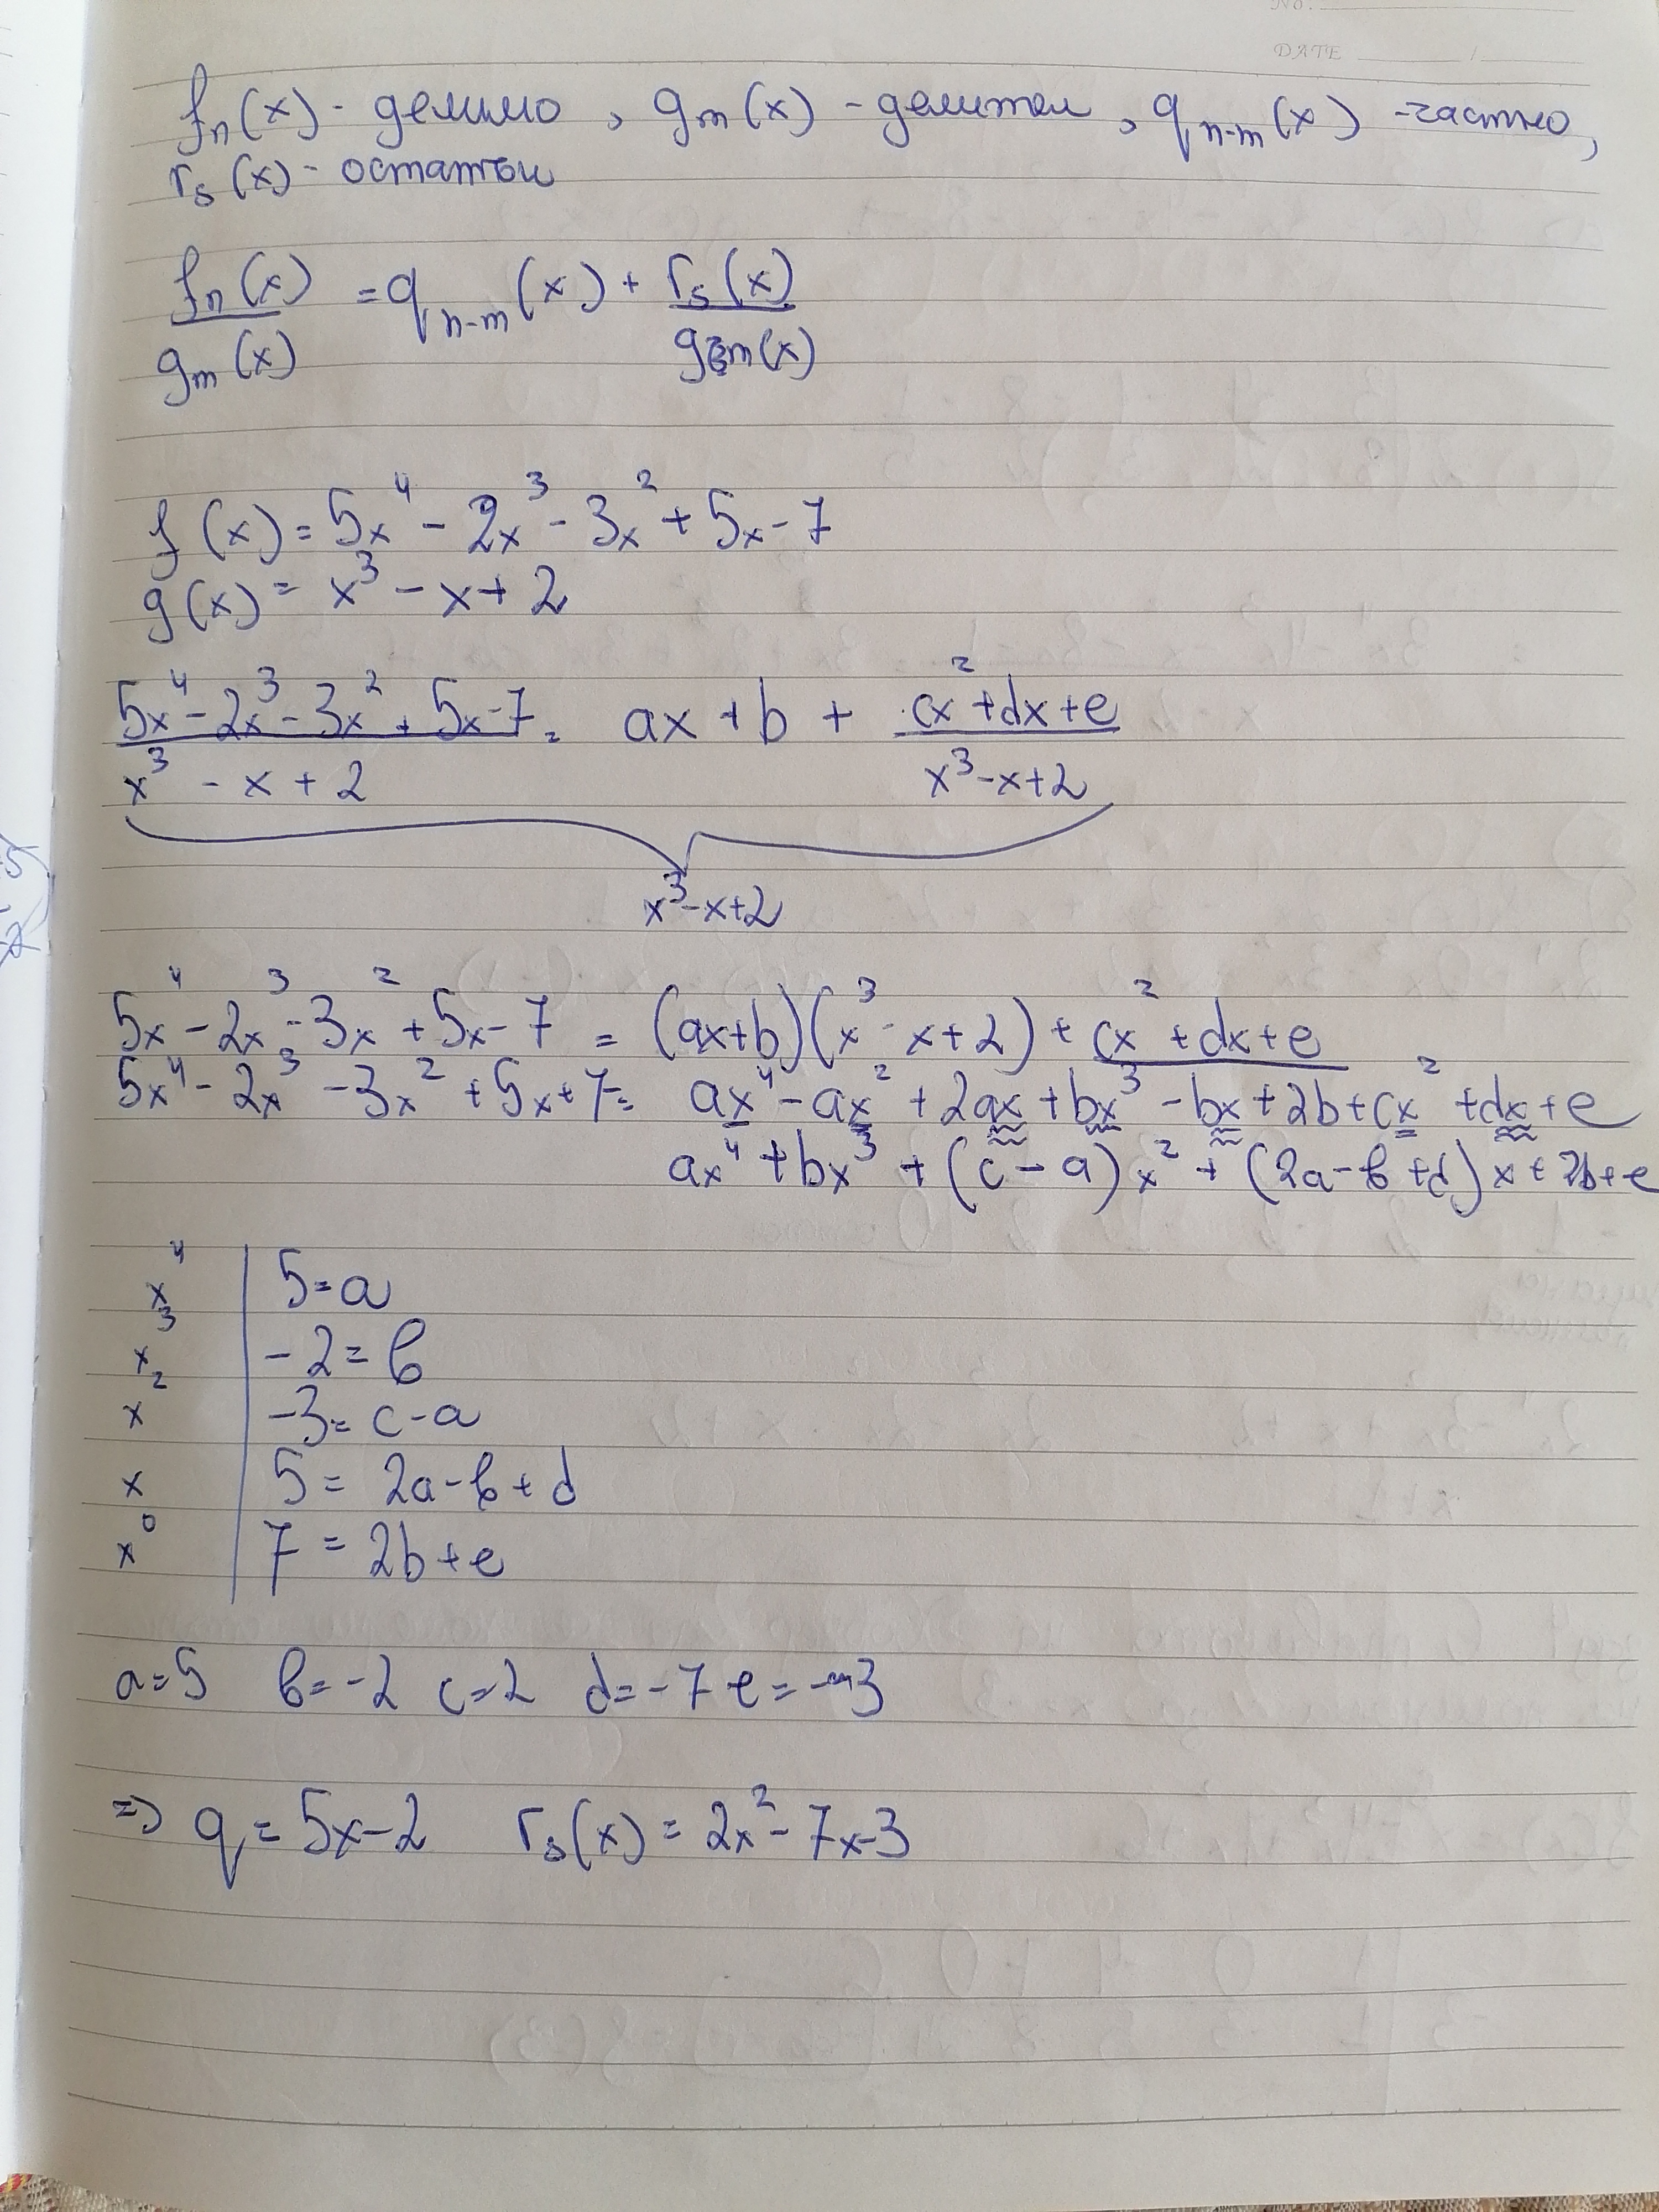 No.
DATE /
fₙ(x) - делимо, gₘ(x) - делител, qₙ₋ₘ(x) - частно,
rₛ(x) - остатък
fₙ(x)/gₘ(x) = qₙ₋ₘ(x) + rₛ(x)/gₘ(x)
f(x) = 5x⁴ - 2x³ - 3x² + 5x - 7
g(x) = x³ - x + 2
(5x⁴ - 2x³ - 3x² + 5x - 7)/(x³ - x + 2) = ax + b + (cx² + dx + e)/(x³ - x + 2)
x³ - x + 2
5x⁴ - 2x³ - 3x² + 5x - 7 = (ax + b)(x³ - x + 2) + cx² + dx + e
5x⁴ - 2x³ - 3x² + 5x + 7 = ax⁴ - ax² + 2ax + bx³ - bx + 2b + cx² + dx + e
ax⁴ + bx³ + (c - a)x² + (2a - b + d)x + 2b + e
x⁴ | 5 = a
x³ | -2 = b
x² | -3 = c - a
x | 5 = 2a - b + d
x⁰ | 7 = 2b + e
a = 5 b = -2 c = 2 d = -7 e = -3
=> q = 5x - 2 rₛ(x) = 2x² - 7x - 3